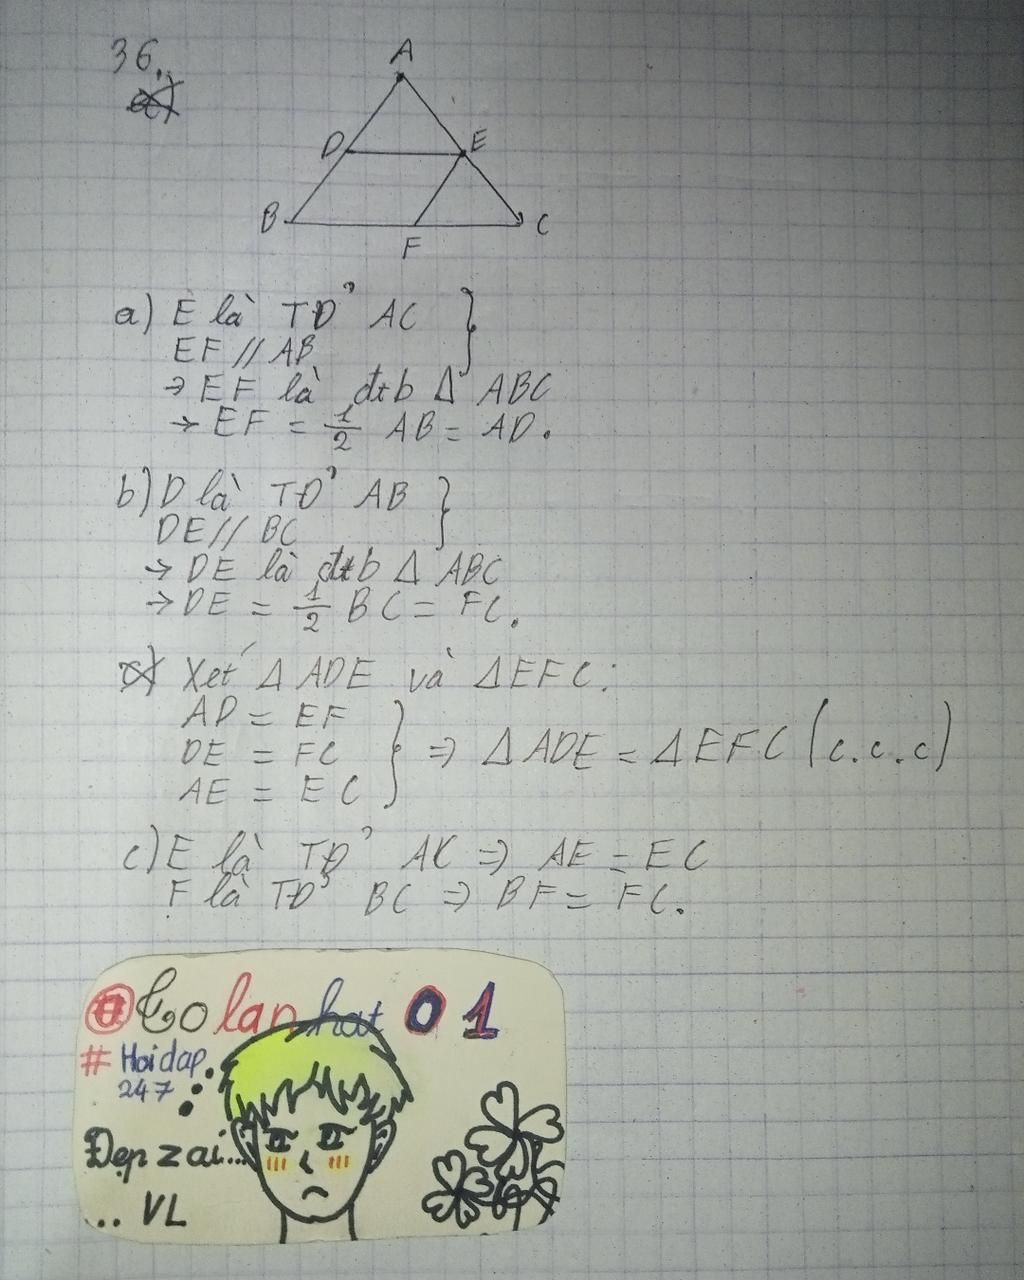 36.
A
D
E
B
F
C
a) E là TĐ' AC
EF // AB
→ EF là đtb Δ ABC
→ EF = 1/2 AB = AD.
b) D là TĐ' AB
DE // BC
→ DE là đtb Δ ABC
→ DE = 1/2 BC = FC.
Xét Δ ADE và Δ EFC:
AD = EF
DE = FC
AE = EC
⇒ Δ ADE = Δ EFC (c.c.c)
c) E là TĐ' AC ⇒ AE = EC
F là TĐ' BC ⇒ BF = FC.
lanhat 01
# Hoidap
247
Đẹp zai...
.. VL